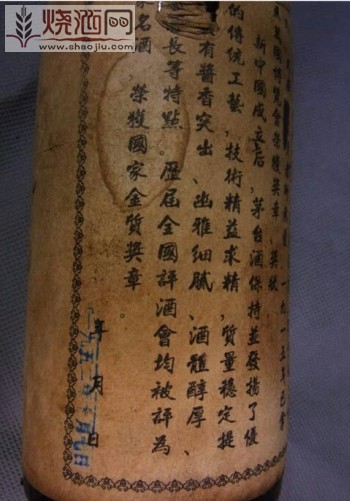 烧酒网
www.shaojiu.com
一九一五年巴拿
萬國博覽會榮獲獎章、獎狀。
新中國成立后,茅台酒保持並發揚了優
的傳統工藝,技術精益求精,質量穩定提
有醬香突出、幽雅細膩、酒體醇厚、
長等特點。歷屆全國評酒會均被評為
名酒 榮獲國家金質獎章
年 月 日